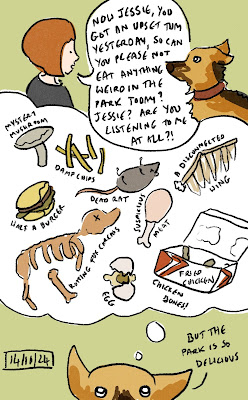 NOW JESSIE, YOU
GOT AN UPSET TUM
YESTERDAY, SO CAN
YOU PLEASE NOT
EAT ANYTHING
WEIRD IN THE
PARK TODAY?
JESSIE? ARE YOU
LISTENING TO ME
AT ALL?!
MYSTERY
MUSHROOM
DAMP CHIPS
DEAD RAT
A DISCONNECTED
WING
HALF A BURGER
SUSPICIOUS
MEAT
ROTTING FOX CARCASS
EGG
FRIED
CHICKEN
CHICKEN
BONES!
14/11/24
BUT THE
PARK IS SO
DELICIOUS